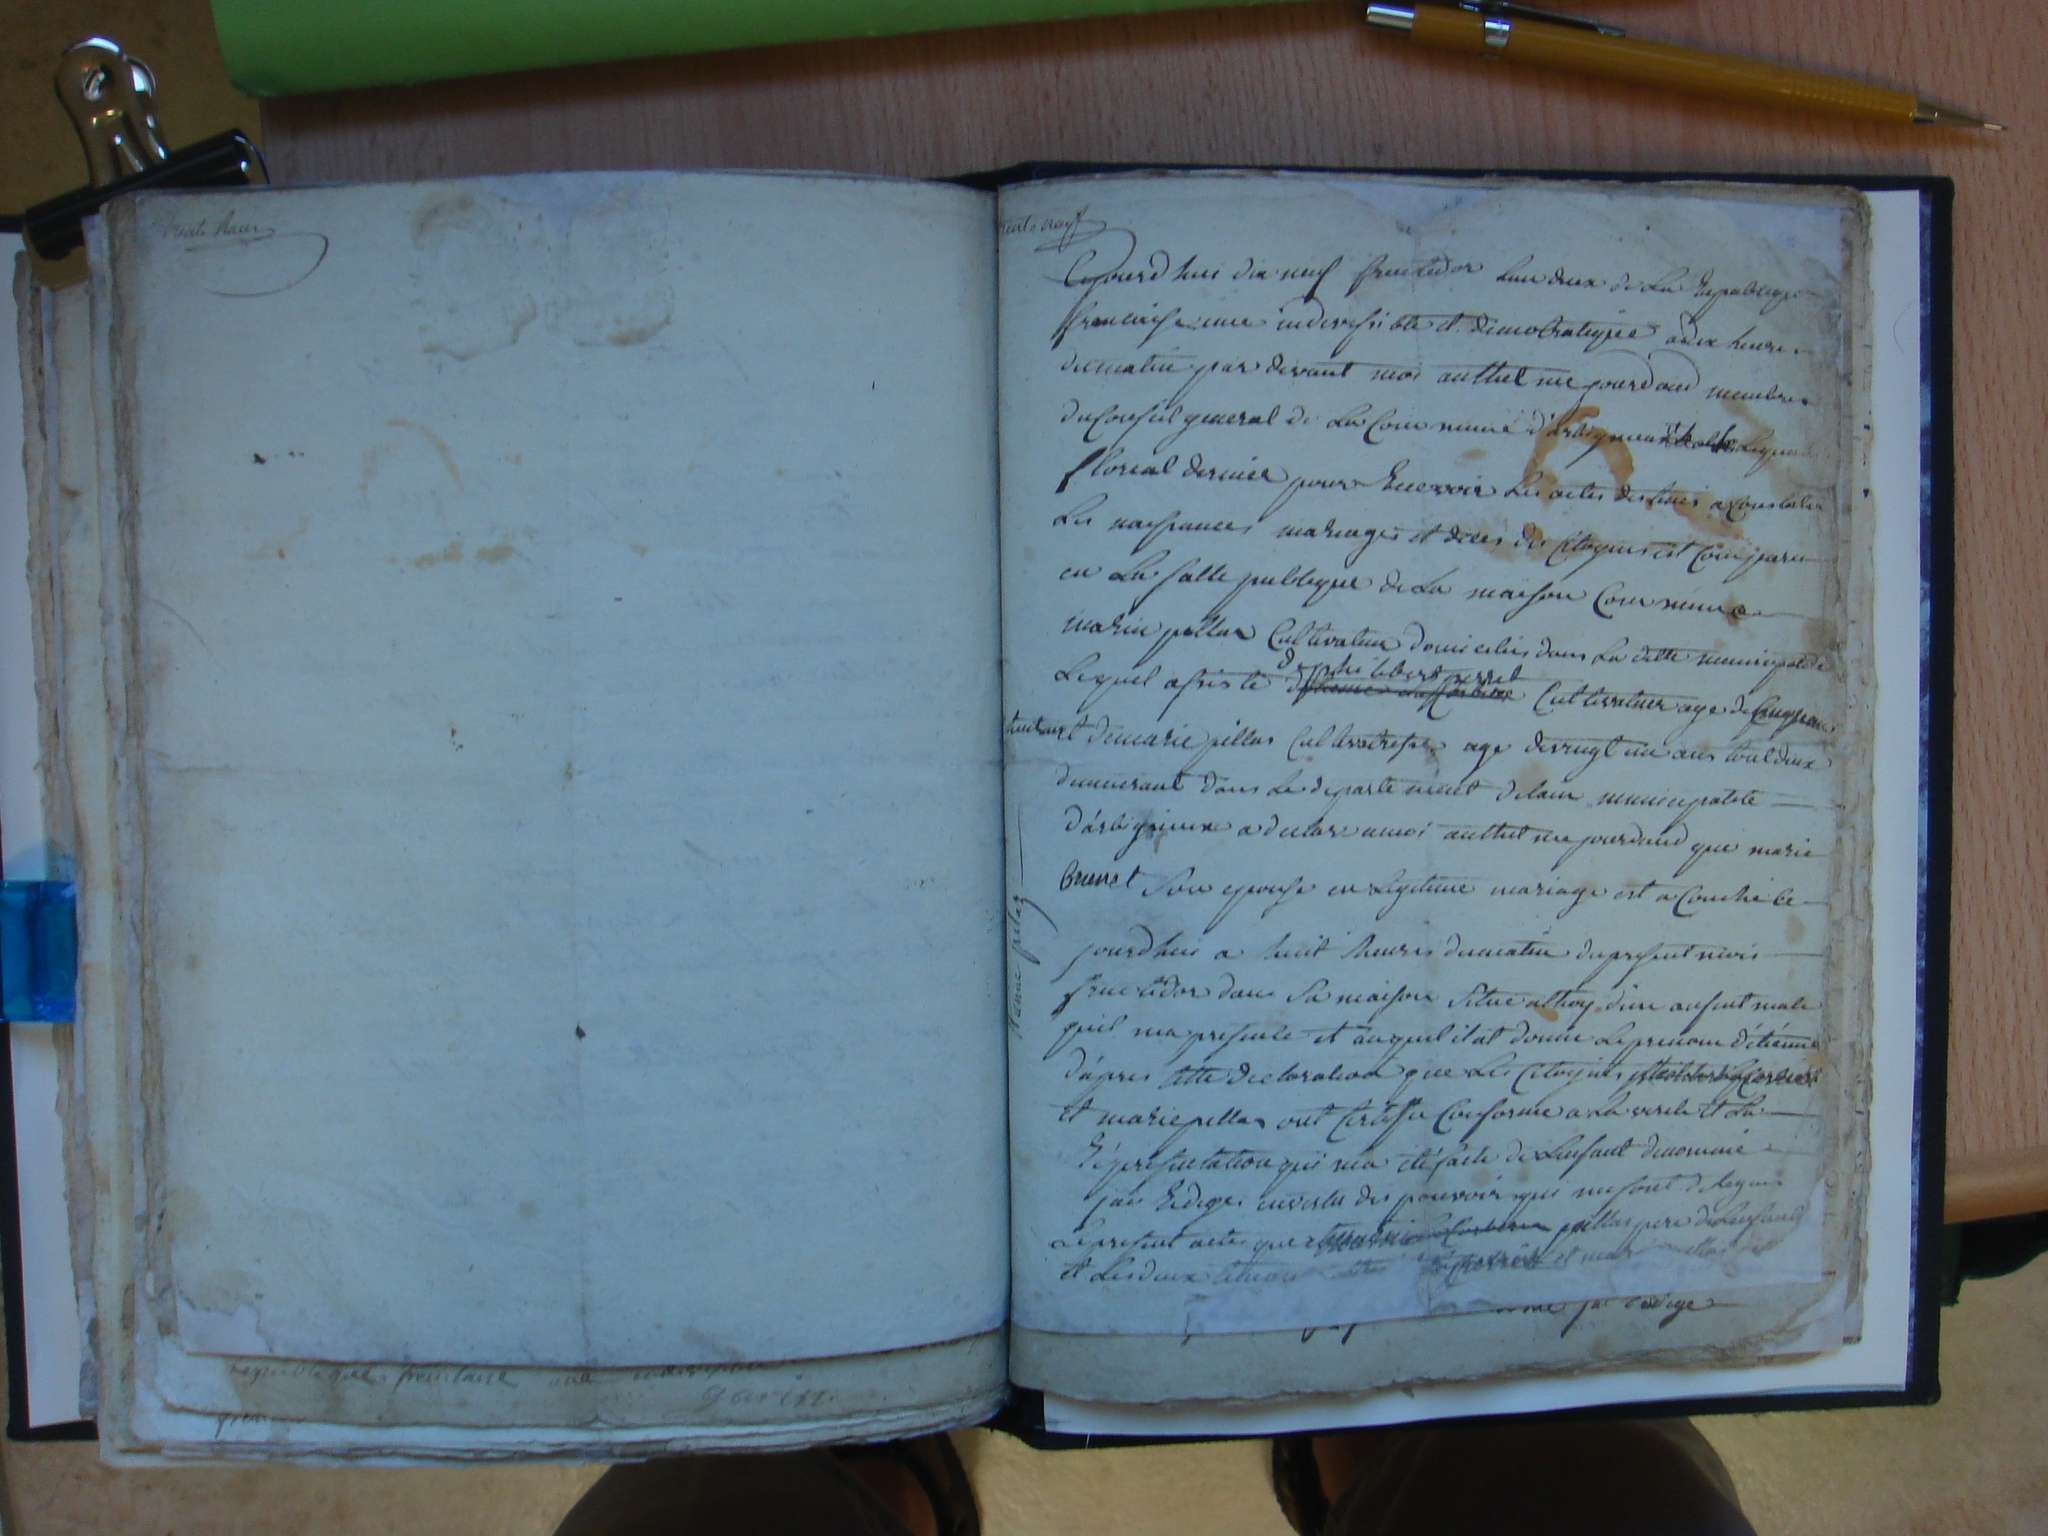 trente neuf
Cejourd hui dix neuf fructidor lan deux de la Republique
francaise une indivisible et democratique a dix heure
du matin par devant moi anthelme jourdand membre
du Conseil general de la Commune d'arbignieux
floreal dernier pour Recevoir les actes destinés a Constater
les naissances mariages et décés des Citoyens est Comparu
en la salle publique de la maison Commune
pillas Cultivateur domicilié dans la ditte municipalité
philibert perret
Lequel assisté de Cultivateur age de
et de marie pillas Cultivatrise age de vingt un ans tout deux
demeurant dans le departement delain municipalité
d'arbignieux a declaré a moi anthelme jourdand que marie
brunet Son epouse en legitime mariage est acouché ce
jourdhui a huit heures du matin du present mois
fructidor dans sa maison situé a thoy d'un anfent male
quil ma presenté et auquel il at donné le prenom d'étienne
d'apres cette declaration que les Citoyens
et marie pillas ont Certifié Conforme a la verité et la
Représentation qui ma été faite de lenfant denommé
jai Redigé en vertu des pouvoirs qui me sont delegués
le present acte que pillas pere de lenfant
et les deux et
jai Redigé
pilaz
republique francaise une